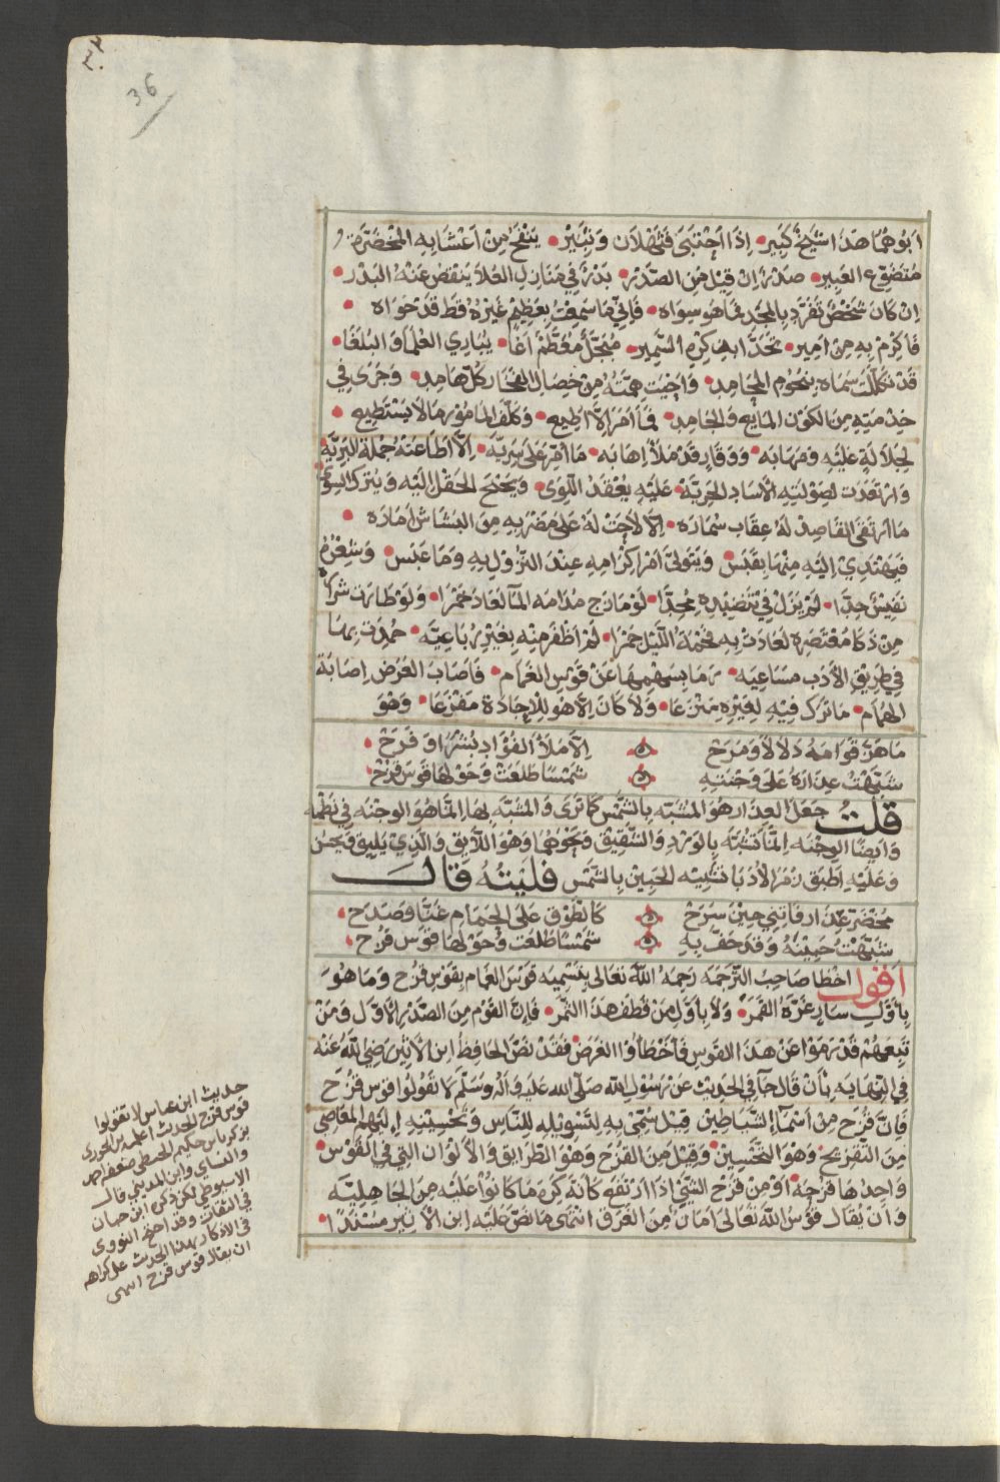 36
ابوهما هذا شيخ كبير • اذا اجتبى فثهلان وثبير • ينفح من اعشابه المخضرة
متضوع العبير • صدر ان قيل من الصدر • بدر في منازل العلا ينقص عنه البدر •
ان كان شخص تفرد بالمجد فما هو سواه • فاني ما سمعت بعظيم غيره قط قد حواه •
فاكرم به من امير • مبجل معظم اغا • يباري العلما والبلغا •
قد تكللت سماه بنجوم المحامد • من خصال الفخار كل هامد • وجرى في
خدمته من الكون المايع والجامد • فما امر الا اطيع • وكلف المامور ما لا يستطيع •
لجلالة عليه ومهابه • ووقار قد ملأ اهابه • ما امر على سرية • الا اطاعته جملة البرية
وارتعدت لصولته الأساد الجرية • عليه يعقد اللوى • ويجنح الحفل اليه ويترك السوى
ما ارتقى القاصد له عقاب سماره • الا لاحت له على مضربه من البشاش اماره •
فيهتدي اليه منها بقبس • ويتولى امر اكرامه عند النزول به وما عبس • وشعره
نفيس جدا • لم يزل في تنضيده مجدا • لو مازج مدامه الماء لعاد خمرا • ولو طارت شراره
من ذكا لعادت به فحمة الليل جمرا • لم اظفر منه بغير رباعيه • حمدت بها
في طريق الأدب مساعيه • رما بسهمها عن قوس الغمام • فاصاب الغرض اصابة
الهمام • ما ترك فيه لغيره منزعا • ولا كان الا هو للإجادة مفزعا • وهو
ما هز قوامه دلالا ومرح الا ملأ الفؤاد بشرا وفرح •
شبهت عذاره على وجنته شمسا طلعت وحولها قوس قزح
قلت جعل العذار هو المشبه بالشمس كما ترى والمشبه بها انما هو الوجنه في نظمه
وايضا الوجنه انما تشبه بالورد والشقيق ونحوهما وهو اللايق والذي يليق ويحسن
وعليه اطبق زمر الأدبا تشبيه الجبين بالشمس فليته قال
مخضر عذار فاتني حين سرح كالطوق على الحمام غنا وصدح
شبهت جبينه وقد حف به شمسا طلعت وحولها قوس قزح
اقول اخطا صاحب الترجمه رحمه الله تعالى بتسميه قوس الغمام بقوس قزح وما هو
باول سار غره القمر • ولا باول من قطف هذا الثمر • فان القوم من الصدر الأول ومن
تبعهم قد رموا عن هذا القوس فاخطأوا الغرض فقد نص الحافظ ابن الأثير رضي الله عنه
في النهايه بان قال جا في الحديث عن رسول الله صلى الله عليه وآله وسلم لا تقولوا قوس قزح
فان قزح من اسما الشياطين قيل سمي به لتسويله للناس وتحسينه اليهم المعاصي
من التقزيح وهو التحسين وقيل من القزح وهو الطرايق والألوان التي في القوس •
واحدها قزحه او من قزح الشي اذا ارتفع كانه كره ما كانوا عليه من الجاهلية
وان يقال قوس الله تعالى امان من الغرق انتهى ما نص عليه ابن الأثير مسندا •
حديث ابن عباس لا تقولوا
قوس قزح الحديث اعله ابن الجوزي
بزكريا بن حكيم الحبطي ضعفه احمد
والنساي وابن المديني قال
الاسيوطي لكن ذكره ابن حبان
في الثقات وقد احتج النووي
في الأذكار بهذا الحديث على كراهه
ان يقال قوس قزح انتهى